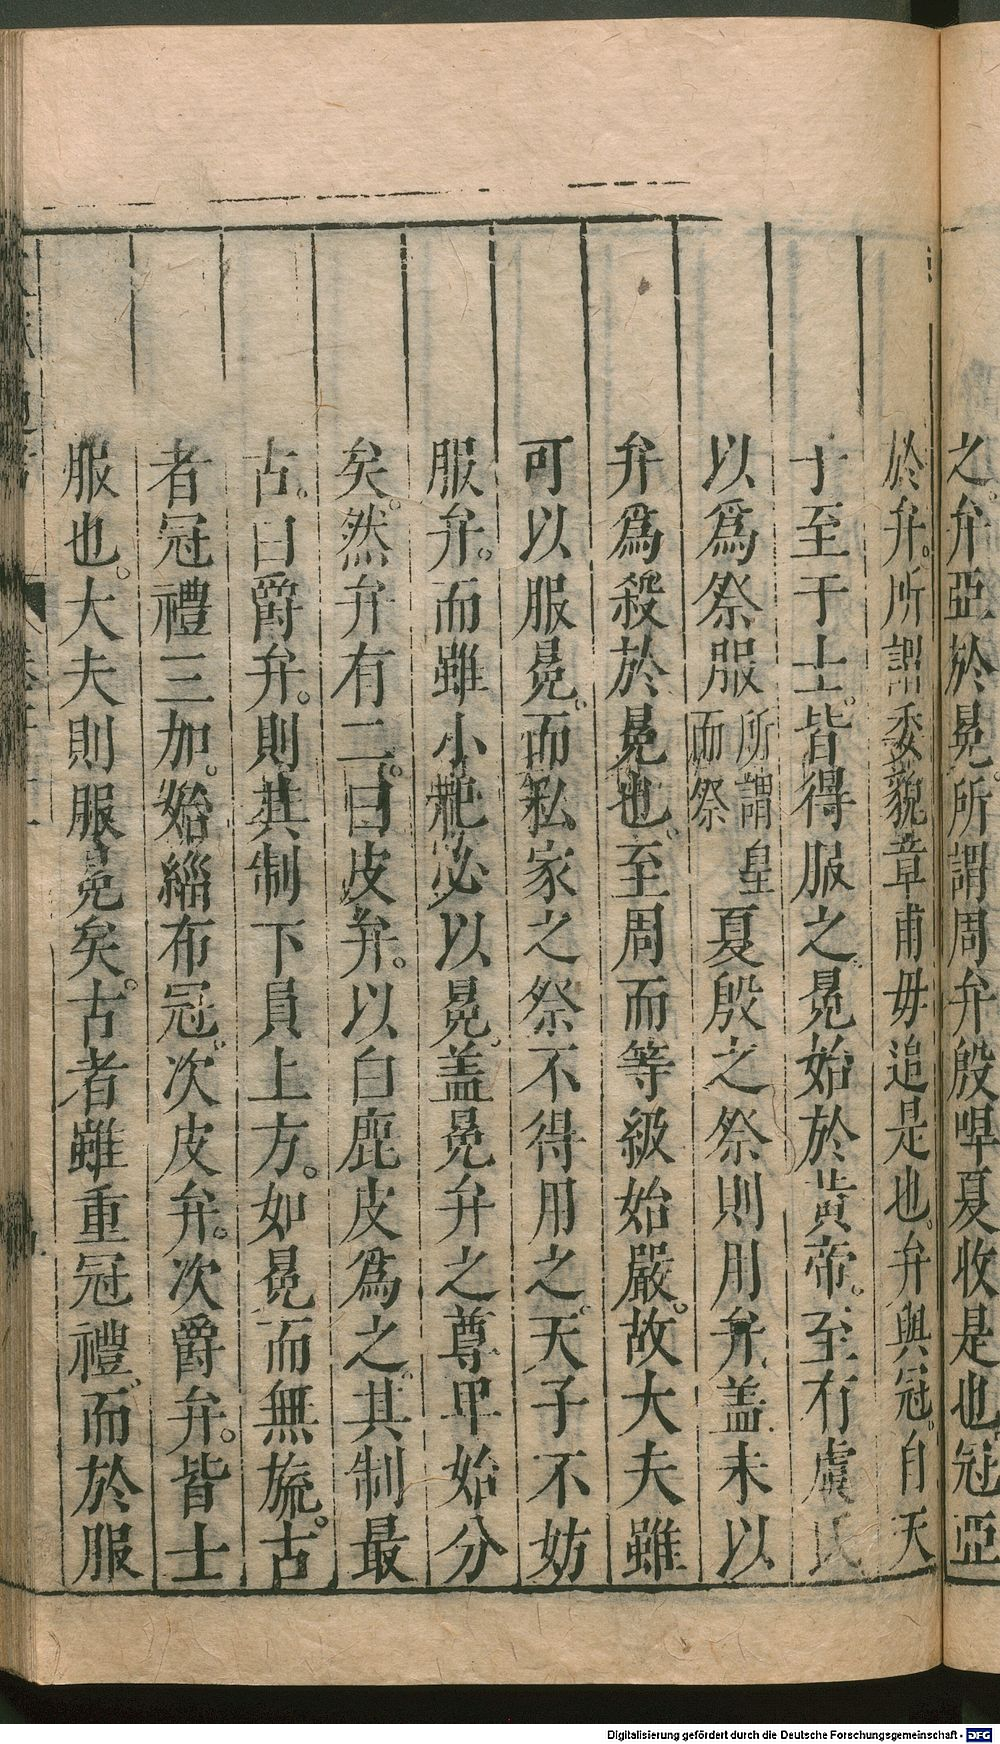 之。弁亞於冕。所謂周弁殷哻夏收是也。冠亞
於弁。所謂委貌章甫毋追是也。弁與冠。自天
子至于士。皆得服之。冕始於黃帝。至有虞氏
以爲祭服所謂皇而祭夏殷之祭則用弁。盖未以
弁爲殺於冕也。至周而等級始嚴。故大夫雖
可以服冕。而私家之祭不得用之。天子不妨
服弁。而雖小祀必以冕。盖冕弁之尊卑始分
矣。然弁有二。曰皮弁。以白鹿皮爲之。其制最
古。曰爵弁。則其制下員上方。如冕而無旒。古
者冠禮三加。始緇布冠。次皮弁。次爵弁。皆士
服也。大夫則服冕矣。古者雖重冠禮。而於服
Digitalisierung gefördert durch die Deutsche Forschungsgemeinschaft - DFG